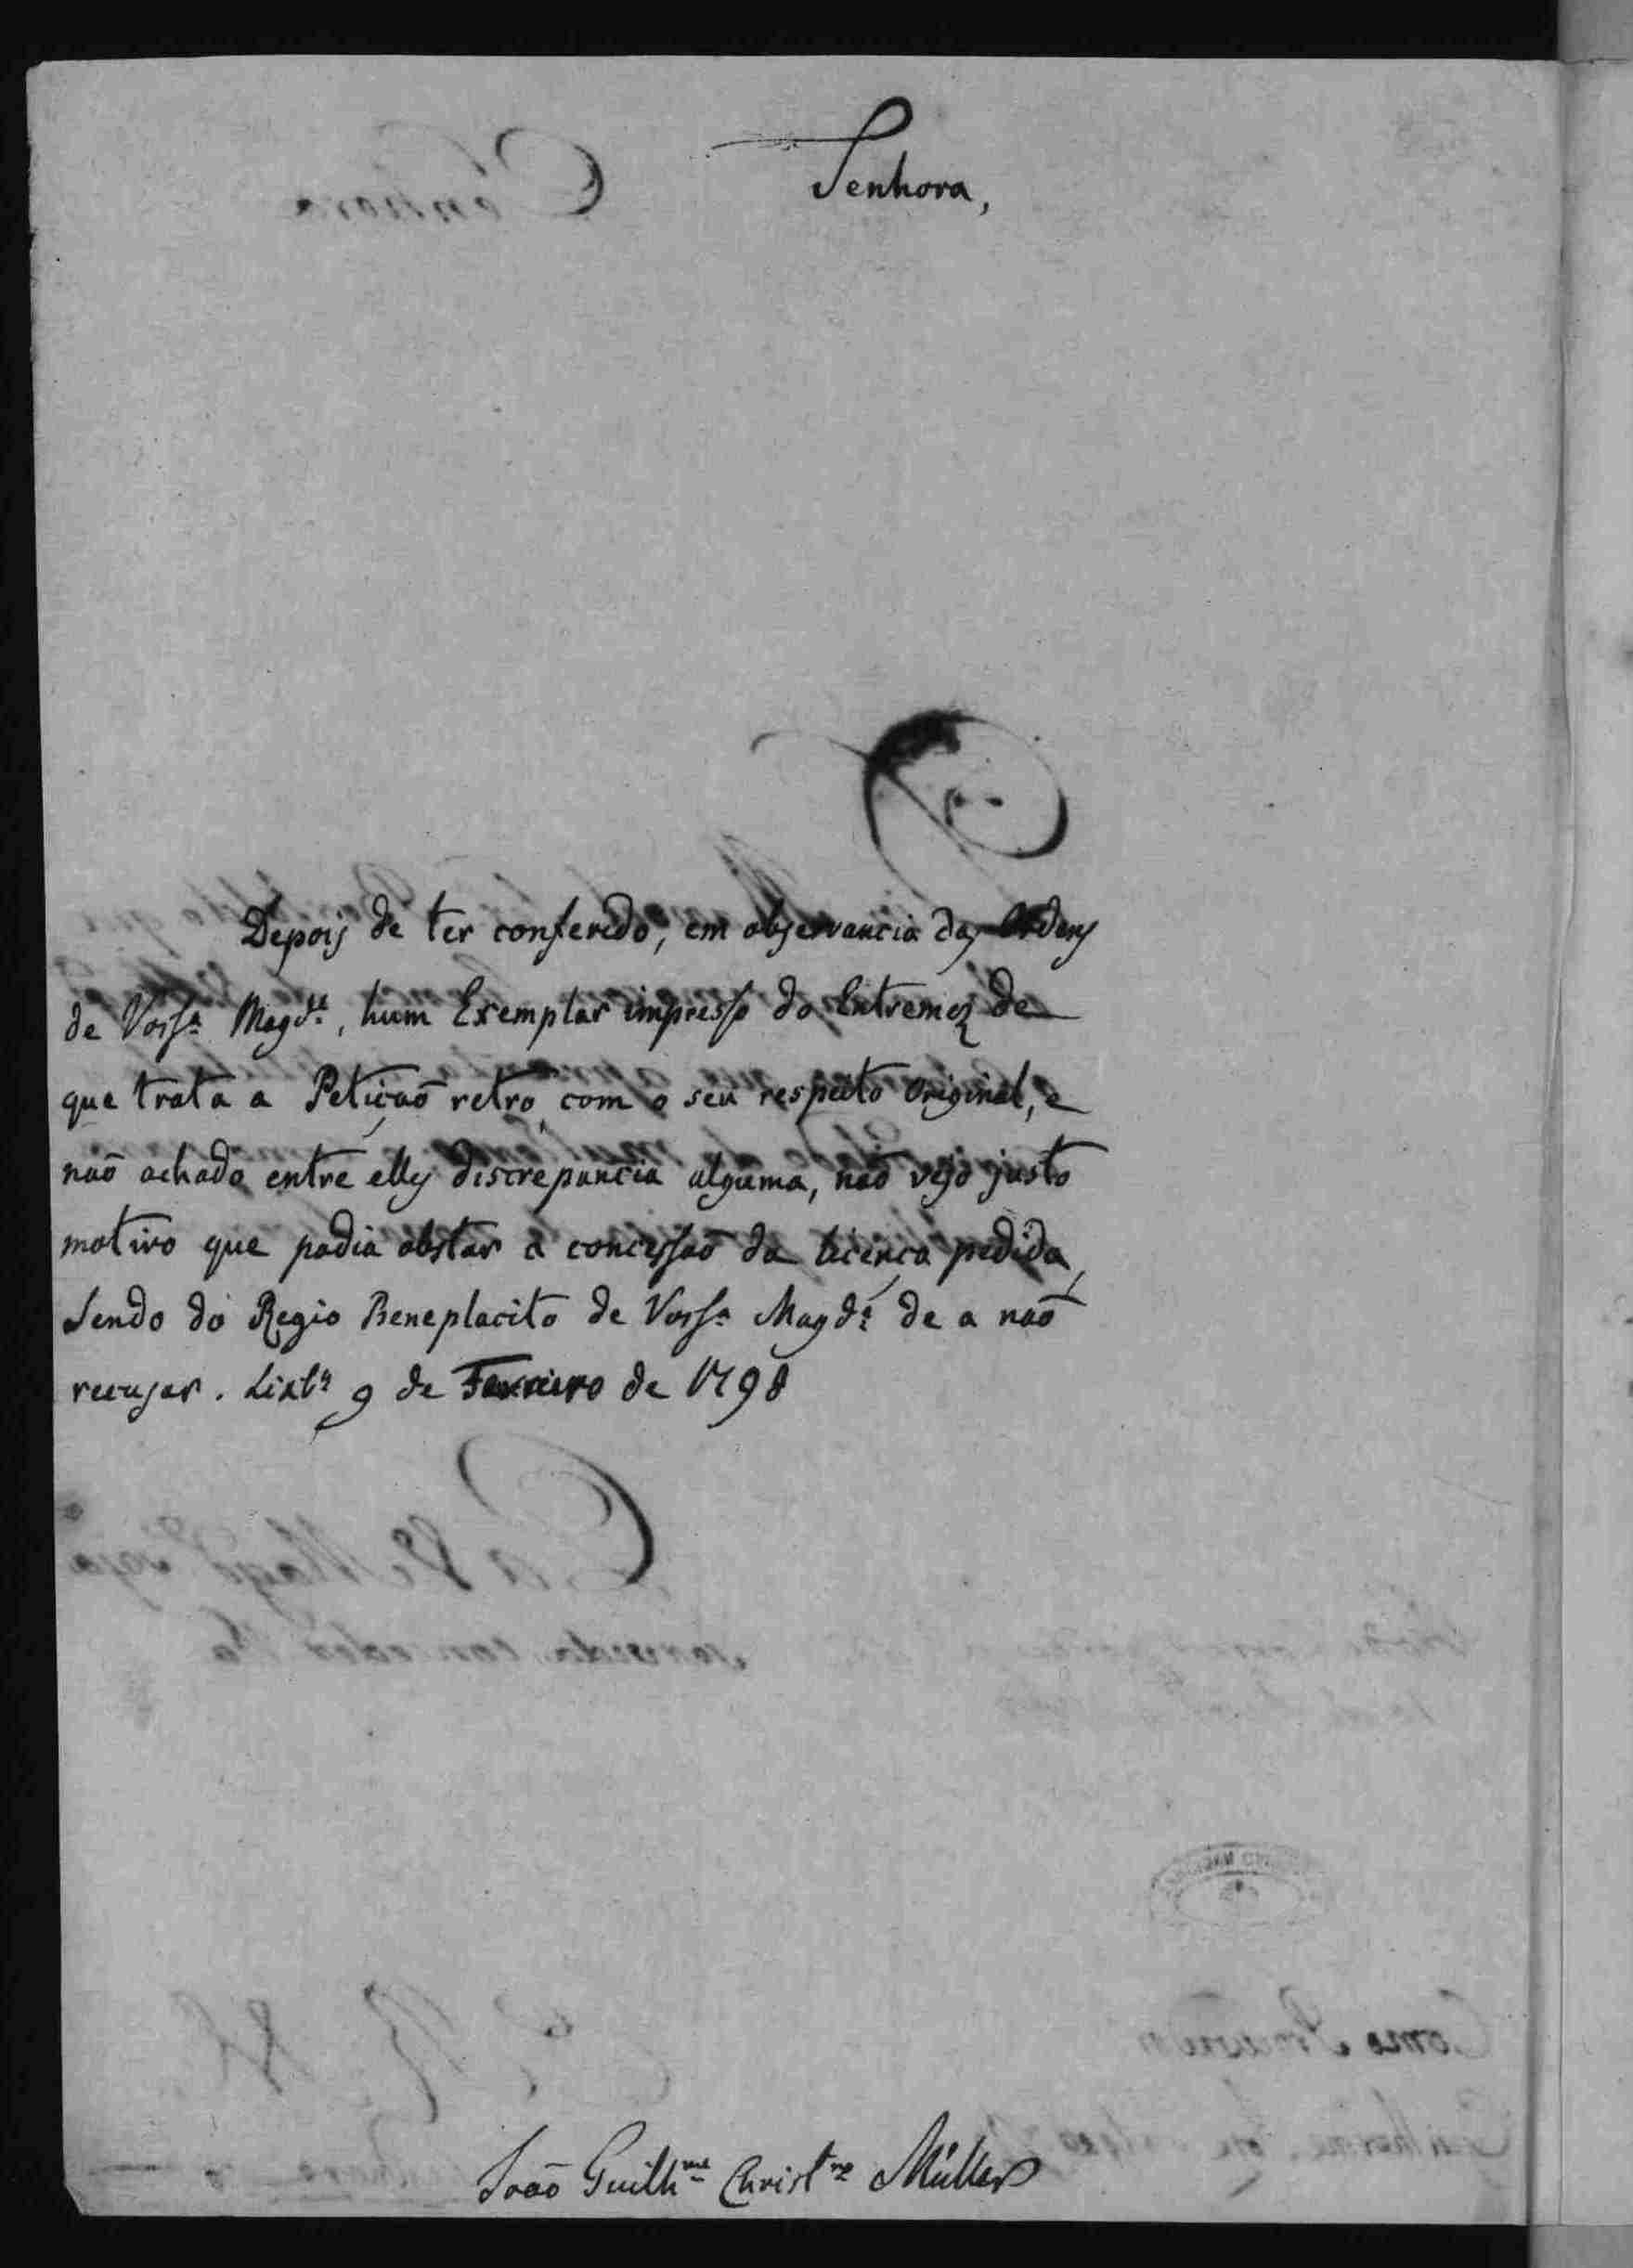 Senhora,
Depois de ter conferido, em observancia das Ordens
de Voss.ª Magd.e, hum Exemplar impresso do Entremez de
que trata a Petiçaõ retro com o seu respecto Original, e
naõ achado entre elles discrepancia alguma, naõ vejo justo
motivo que podia obstar a concessaõ da licença pedida,
Sendo do Regio Beneplacito de Voss.ª Magd.e de a naõ
recusar. Lixb.ª 9 de Fevreiro de 1798
Joaõ Guilh.me Christ.no Müller